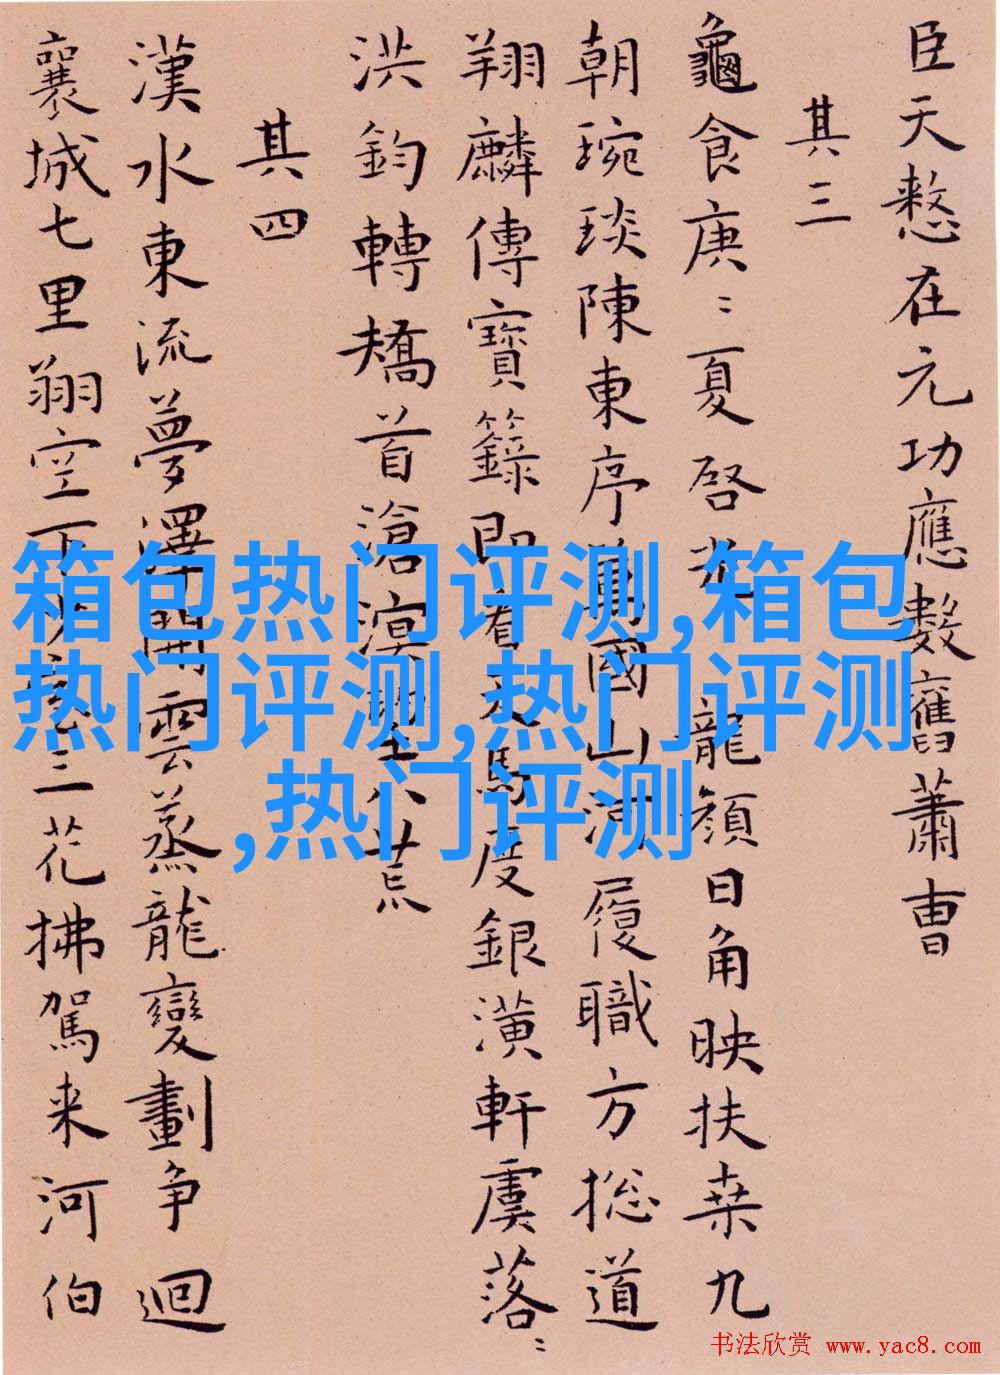 臣天憗在元功應數舊蕭曹
其三
龜食庚〻夏啓光龍顏日角映扶桑九
朝琬琰陳東序萬國山河履職方揔道
翔麟傳寶籙即看天馬度銀潢軒虞落〻
洪鈞轉矯首滄溟望八荒
其四
漢水東流夢澤開雲蒸龍變劃争迴
襄城七里翔空下少室三花拂駕来河伯
箱包热门评测,箱包
热门评测,热门评测
,热门评测
书法欣赏 www.yac8.com